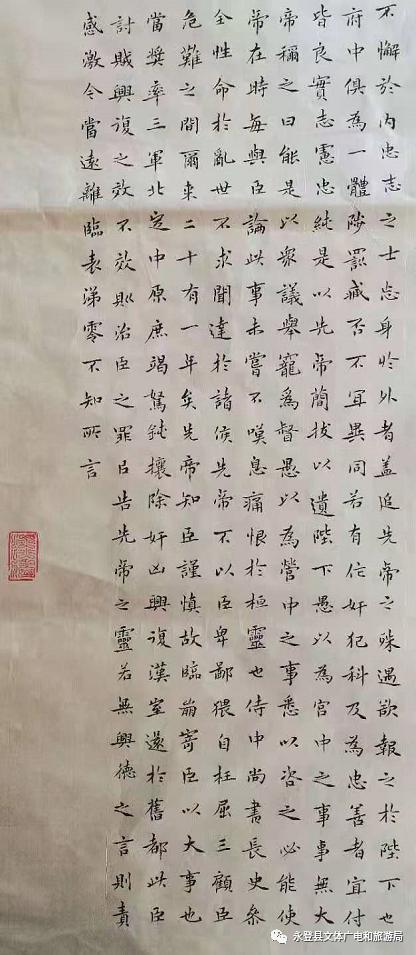 不懈於内忠志之士忘身於外者盖追先帝之殊遇欲報之於陛下也
府中俱為一體陟罰臧否不宜異同若有作奸犯科及為忠善者宜付
皆良實志慮忠純是以先帝簡拔以遺陛下愚以為宮中之事事無大
帝稱之曰能是以衆議舉寵為督愚以為營中之事悉以咨之必能使
帝在時每與臣論此事未嘗不嘆息痛恨於桓靈也侍中尚書長史參
全性命於亂世不求聞達於諸侯先帝不以臣卑鄙猥自枉屈三顧臣
危難之間爾来二十有一年矣先帝知臣謹慎故臨崩寄臣以大事也
當奬率三軍北定中原庶竭駑鈍攘除奸凶興復漢室還於舊都此臣
討賊興復之效不效則治臣之罪以告先帝之靈若無興德之言則責
感激今當遠離臨表涕零不知所言
永登县文体广电和旅游局